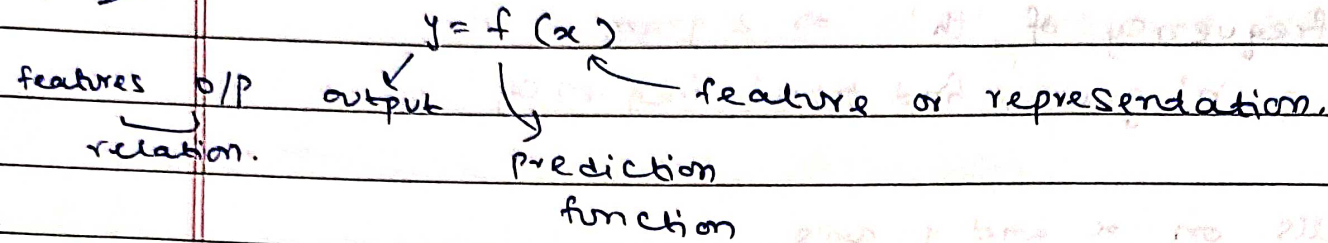 y = f (x)
features o/p output feature or represendation.
relation. prediction
function